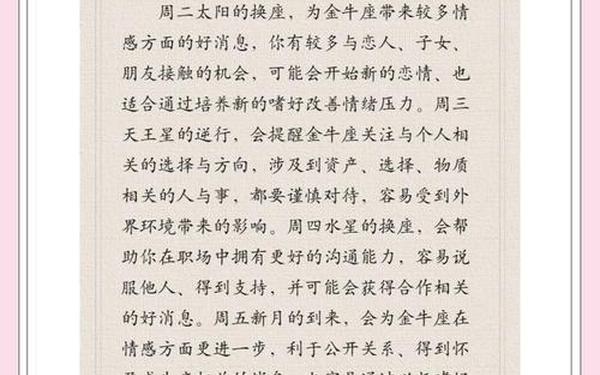 周二太阳的换座，为金牛座带来较多情
感方面的好消息，你有较多与恋人、子女、
朋友接触的机会，可能会开始新的恋情、也
适合通过培养新的嗜好改善情绪压力。周三
天王星的逆行，会提醒金牛座关注与个人相
关的选择与方向，涉及到资产、选择、物质
相关的人与事，都要谨慎对待，容易受到外
界环境带来的影响。周四水星的换座，会帮
助你在职场中拥有更好的沟通能力，容易说
服他人、得到支持，并可能会获得合作相关
的好消息。周五新月的到来，会为金牛座在
情感方面更进一步，利于公开关系、得到怀